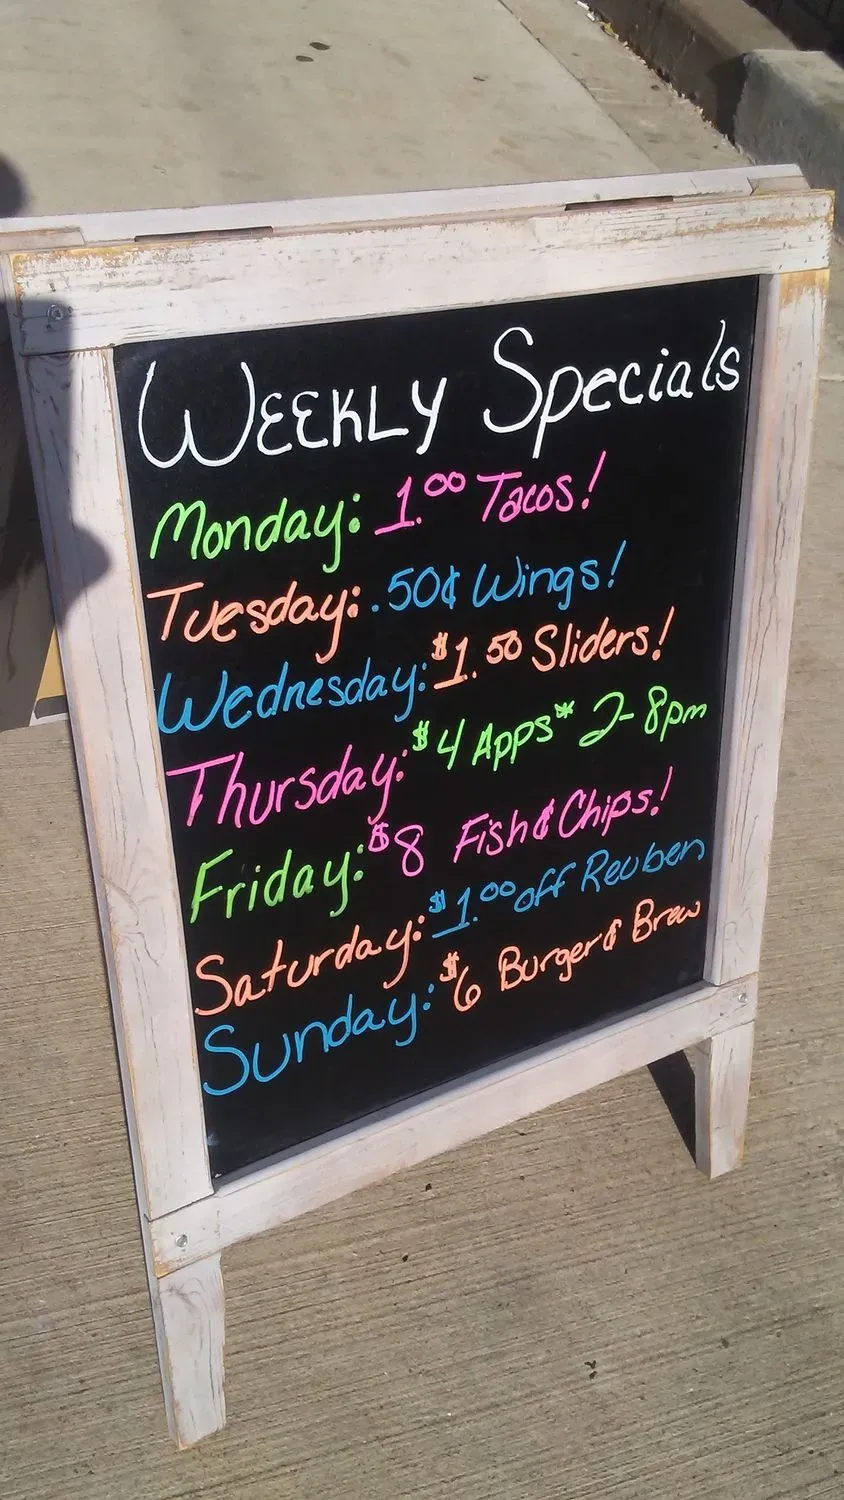 WEEKLY Specials
Monday: 1.00 Tacos!
Tuesday: .50¢ Wings!
Wednesday: $1.50 Sliders!
Thursday: $4 Apps* 2-8pm
Friday: $8 Fish & Chips!
Saturday: $1.00 off Reuben
Sunday: $6 Burger & Brew